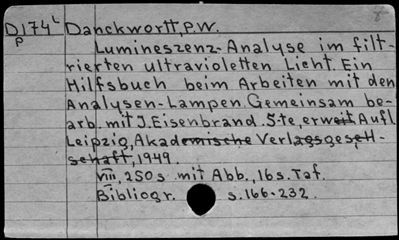 D174L Danckwortt, P.W. 8
p
Lumineszenz-Analyse im filt-
rierten ultravioletten Licht. Ein
Hilfsbuch beim Arbeiten mit den
Analysen-Lampen. Gemeinsam be-
arb. mit J. Eisenbrand. 5te, erweit. Aufl.
Leipzig, Akademische Verlagsgesell-
schaft, 1949.
VIII, 250s. mit Abb., 16s. Taf.
Bibliogr. s. 166-232.